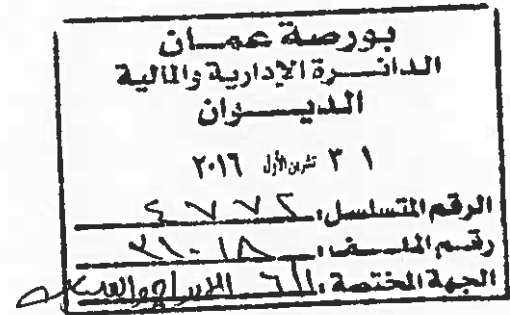 بورصة عمان
الدائرة الإدارية والمالية
الديوان
٣١ تشرين الأول ٢٠١٦
الرقم المتسلسل: ٤٧٧٢
رقم الملف:
الجهة المختصة: الإدراج